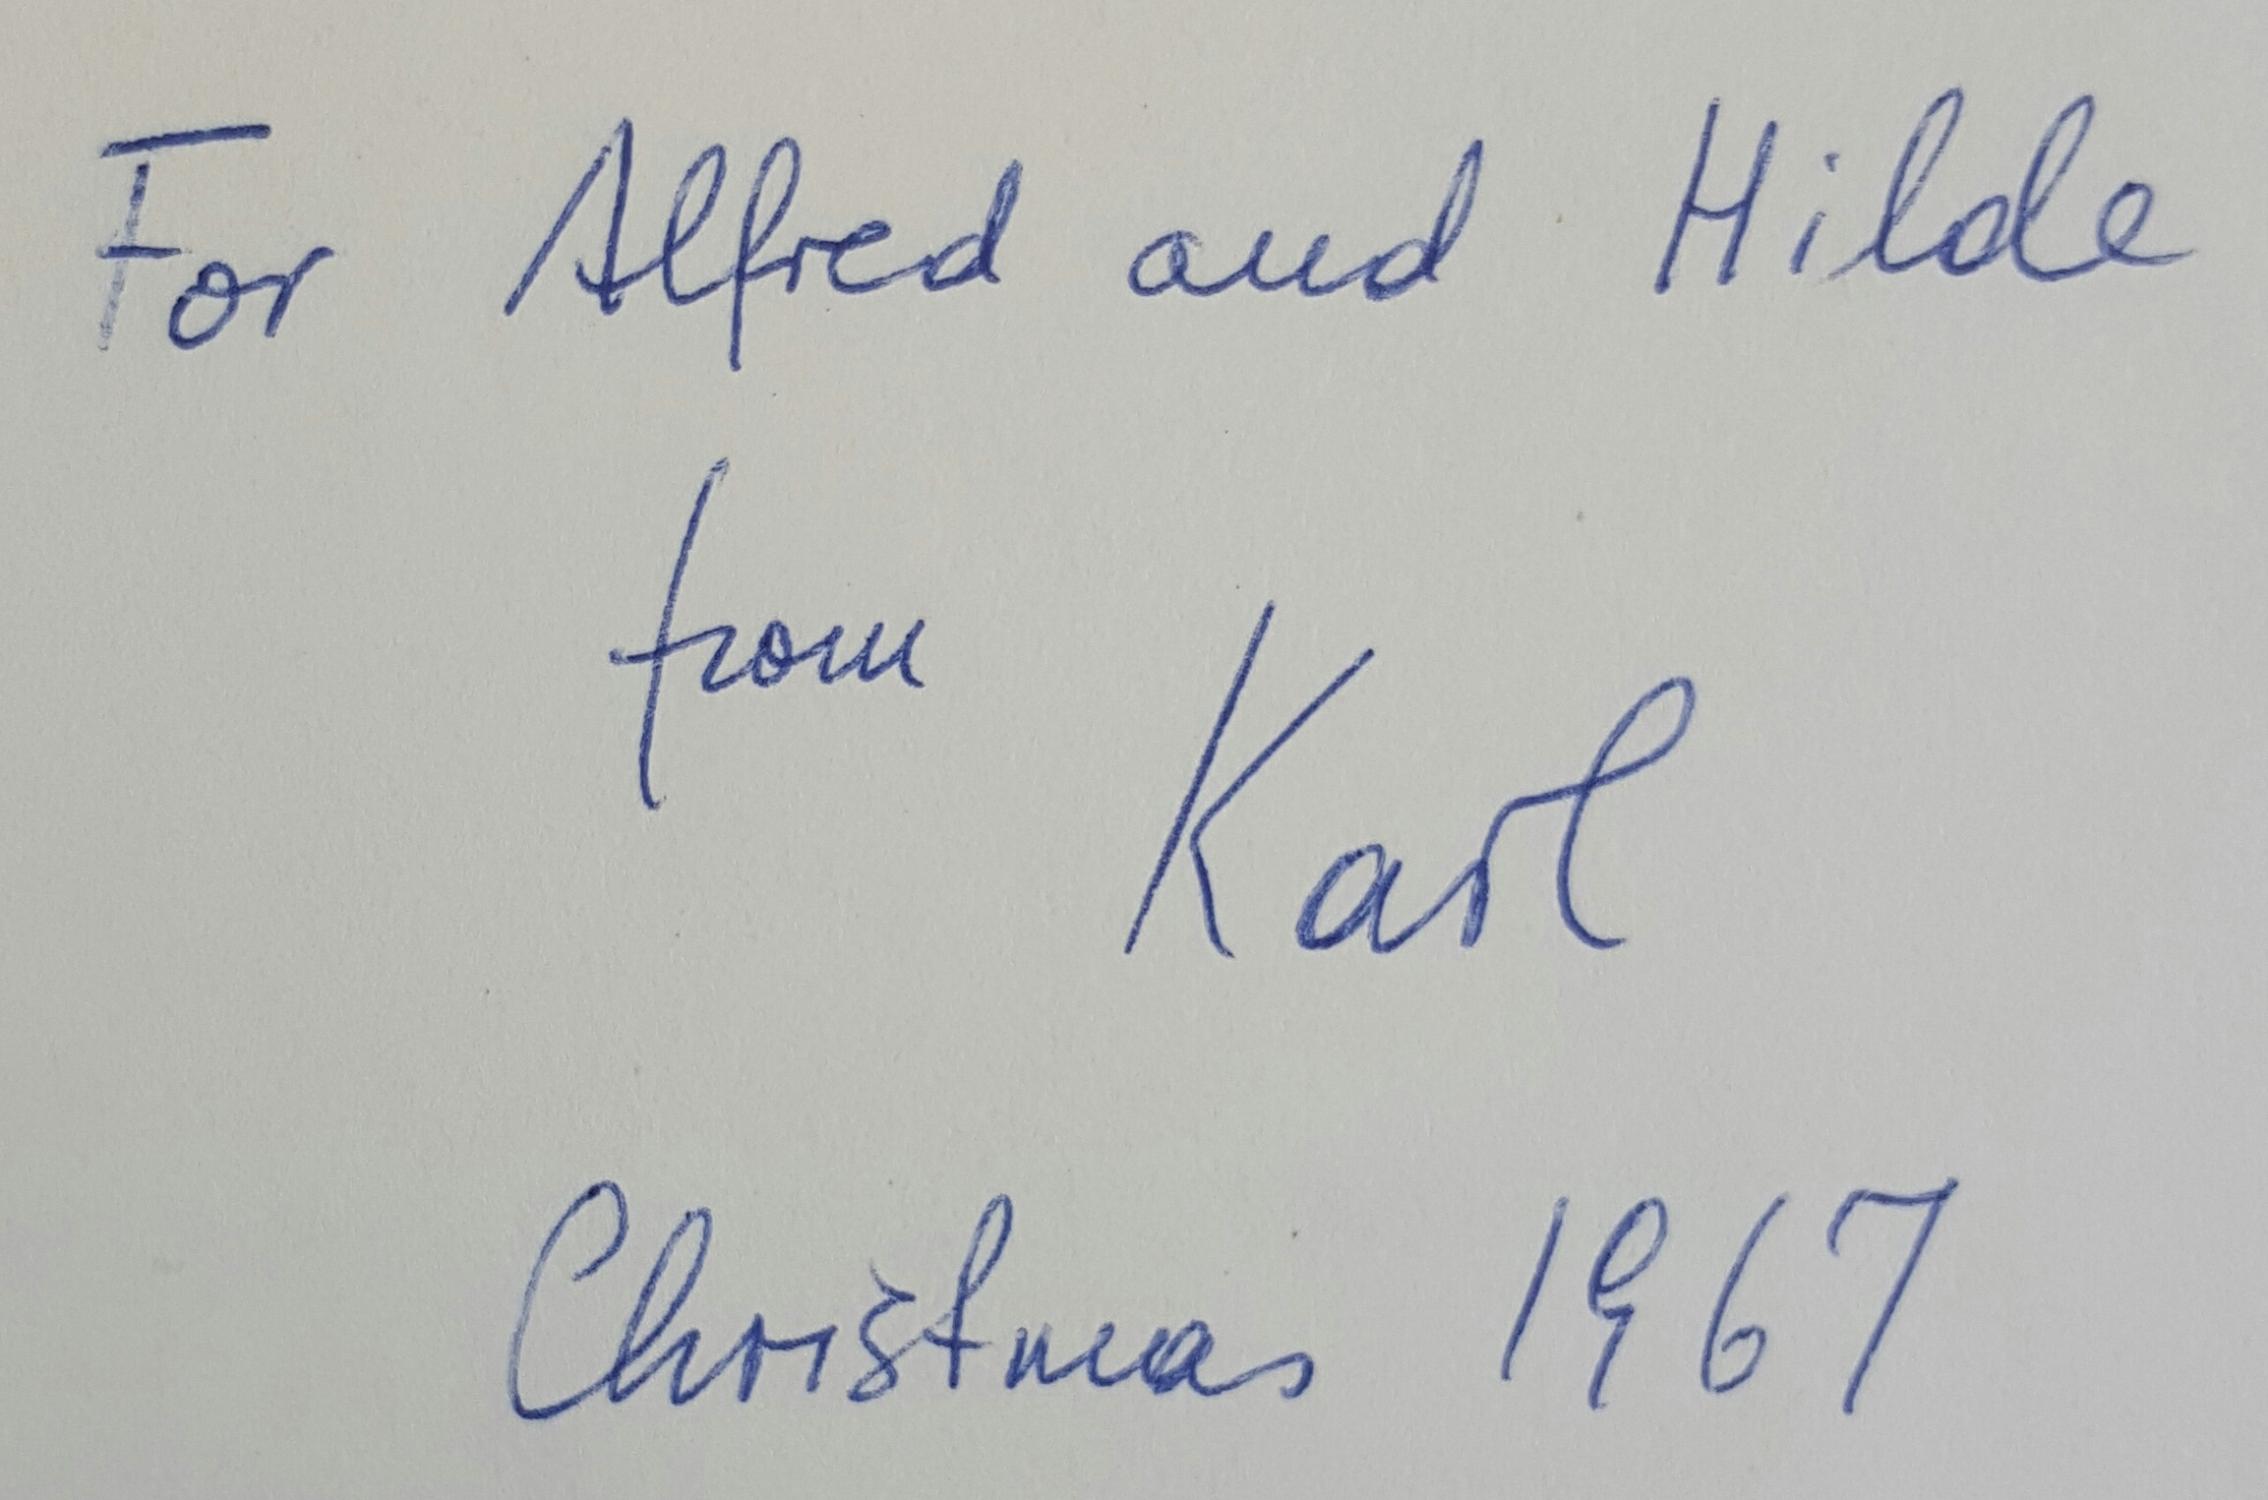 For Alfred and Hilde
from
Karl
Christmas 1967